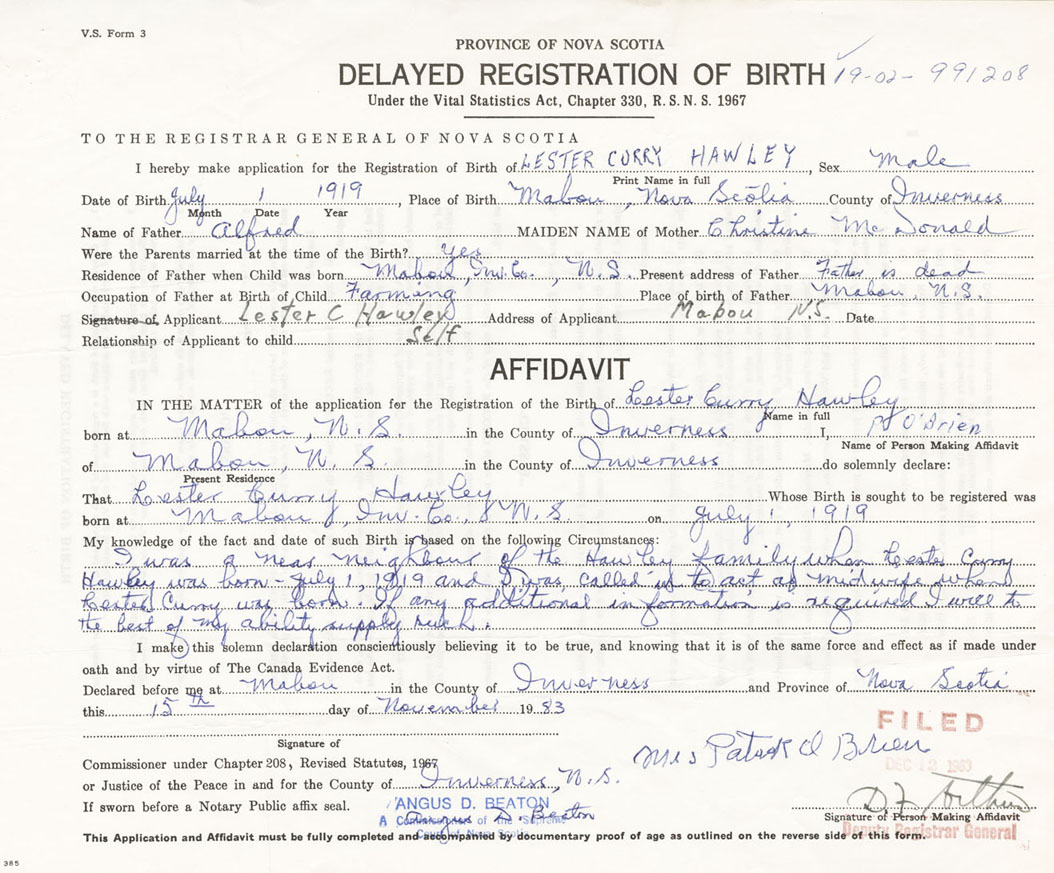 V.S. Form 3
PROVINCE OF NOVA SCOTIA
DELAYED REGISTRATION OF BIRTH 19-02-991208
Under the Vital Statistics Act, Chapter 330, R.S.N.S. 1967
TO THE REGISTRAR GENERAL OF NOVA SCOTIA
I hereby make application for the Registration of Birth of LESTER CURRY HAWLEY, Sex Male
Print Name in full
Date of Birth July 1 1919, Place of Birth Mabou, Nova Scotia County of Inverness
Month Date Year
Name of Father Alfred MAIDEN NAME of Mother Christine McDonald
Were the Parents married at the time of the Birth? Yes
Residence of Father when Child was born Mabou, Inv. Co., N.S. Present address of Father Father is dead
Occupation of Father at Birth of Child Farming Place of birth of Father Mabou, N.S.
Signature of Applicant Lester C Hawley Address of Applicant Mabou N.S. Date
Relationship of Applicant to child Self
AFFIDAVIT
IN THE MATTER of the application for the Registration of the Birth of Lester Curry Hawley
Name in full
born at Mabou, N.S. in the County of Inverness I, P O'Brien
Name of Person Making Affidavit
of Mabou, N.S. in the County of Inverness do solemnly declare:
Present Residence
That Lester Curry Hawley Whose Birth is sought to be registered was
born at Mabou, Inv. Co., N.S. on July 1, 1919
My knowledge of the fact and date of such Birth is based on the following Circumstances:
I was a near neighbour of the Hawley family when Lester Curry
Hawley was born - July 1, 1919 and I was called in to act as midwife when
Lester Curry was born. If any additional information is required I will to
the best of my ability supply such.
I make this solemn declaration conscientiously believing it to be true, and knowing that it is of the same force and effect as if made under
oath and by virtue of The Canada Evidence Act.
Declared before me at Mabou in the County of Inverness and Province of Nova Scotia
this 15th day of November 1983
FILED
Signature of
Mrs Patrick O Brien
DEC 12 1983
Commissioner under Chapter 208, Revised Statutes, 1967
or Justice of the Peace in and for the County of Inverness, N.S.
ANGUS D. BEATON
If sworn before a Notary Public affix seal.
Angus D. Beaton
A Commissioner of the Supreme
Court of Nova Scotia
D.F.
Signature of Person Making Affidavit
Deputy Registrar General
This Application and Affidavit must be fully completed and accompanied by documentary proof of age as outlined on the reverse side of this form.
385